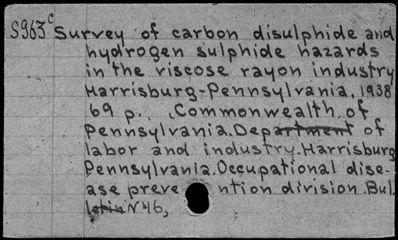 S963c Survey of carbon disulphide and
hydrogen sulphide hazards
in the viscose rayon industry
Harrisburg-Pennsylvania, 1938
69 p., Commonwealth of
Pennsylvania. Department of
labor and industry. Harrisburg
Pennsylvania. Occupational dise-
ase preve ntion division. Bul-
letin N46,